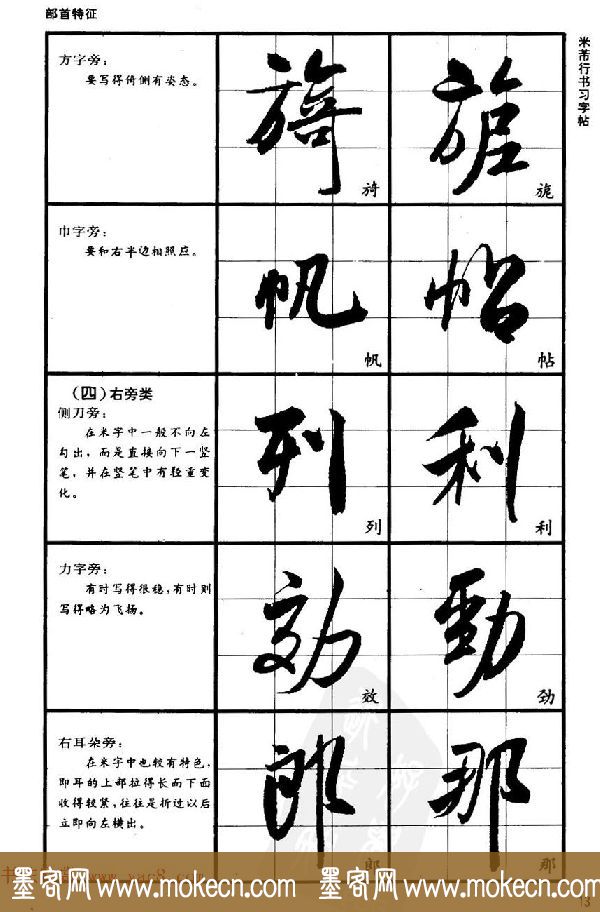 部首特征
米芾行书习字帖
方字旁：
要写得倚侧有姿态。
旑
旎
巾字旁：
要和右半边相照应。
帆
帖
（四）右旁类
侧刀旁：
在米字中一般不向左
勾出，而是直接向下一竖
笔，并在竖笔中有轻重变
化。
列
利
力字旁：
有时写得很稳，有时则
写得略为飞扬。
效
劲
右耳朵旁：
在米字中也较有特色，
即耳的上部拉得长而下面
收得较紧，往往是折过以后
立即向左横出。
郎
那
墨客网 www.mokecn.com 墨客网 www.mokecn.com
13